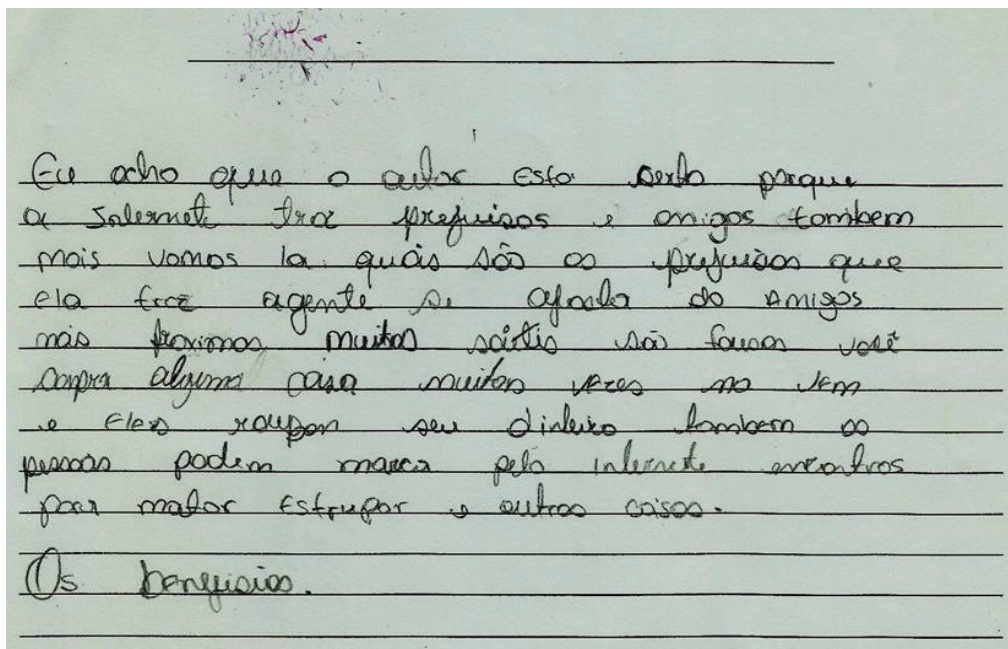 Eu acho que o autor esta serto porque
a Internet traz prejuisos e amigos tambem
mais vamos la. quais são os prejuisos que
ela traz agente se afasta do amigos
mais proximos, muitos são você
compra alguma coisa muitas vezes no vem
e eles roupam seu dinheiro tambem as
pessoas podem marca pela internete encontros
para mator estrupar e outras coisas.
Os benefisios.